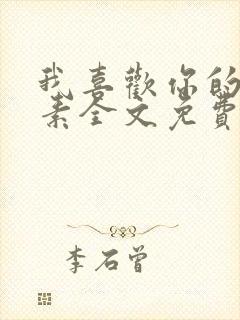 我喜歡你的
素全文免費
李石曾